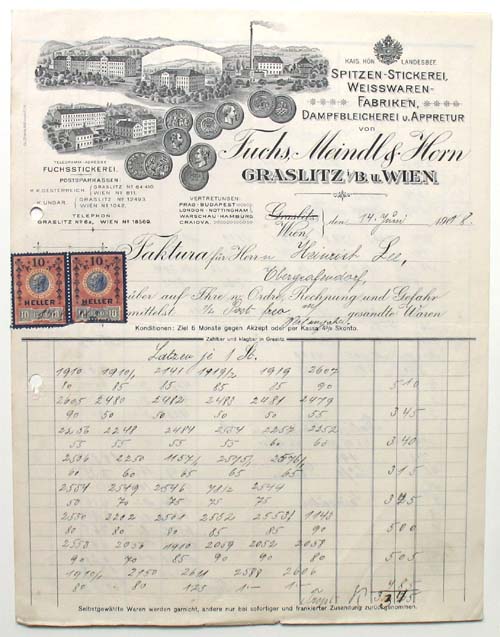 KAIS. KÖN. LANDESBEF.
SPITZEN-STICKEREI,
WEISSWAREN-
FABRIKEN,
DAMPFBLEICHEREI u. APPRETUR
von
Fuchs, Meindl & Horn
GRASLITZ i/B. u. WIEN
TELEGRAMM-ADRESSE
FUCHSSTICKEREI.
POSTSPARKASSEN:
K.K. OESTERREICH, GRASLITZ No 64410
WIEN No 811.
K. UNGAR. GRASLITZ No 12493.
WIEN No 1042.
TELEPHON
GRASLITZ No 6a, WIEN No 18569.
VERTRETUNGEN:
PRAG·BUDAPEST
LONDON·NOTTINGHAM
WARSCHAU·HAMBURG
CRAIOVA.
Graslitz
Wien, den 14. Juni 1908.
Faktura für Herrn Heinrich
Obergrafendorf,
über auf Ihre w. Ordre, Rechnung und Gefahr
mittelst gesandte Waren
10 10
HELLER HELLER
Konditionen: Ziel 6 Monate gegen Akzept oder per Kassa 4% Skonto.
Zahlbar und klagbar in Graslitz.
1910 1910/1 2141 1919/2 1919 2607
80 85 85 85 85 90 510
2605 2480 2482 2483 2481 2479
90 50 50 50 50 55 345
2236 2248 2484 2257 2252
55 55 55 55 60 60 340
2250
60 60 65 65 65 315
2554 2549 2546 2544
50 70 75 75 75
2202 2552 1143
80 80 80 85 85 90 500
2056 1910 2059 2052 2058
90 70 85 90 90 80 505
2150 2606
80 80 123 1.- 1.-
Selbstgewählte Waren werden garnicht, andere nur bei sofortiger und frankierter Zusendung zurückgenommen.